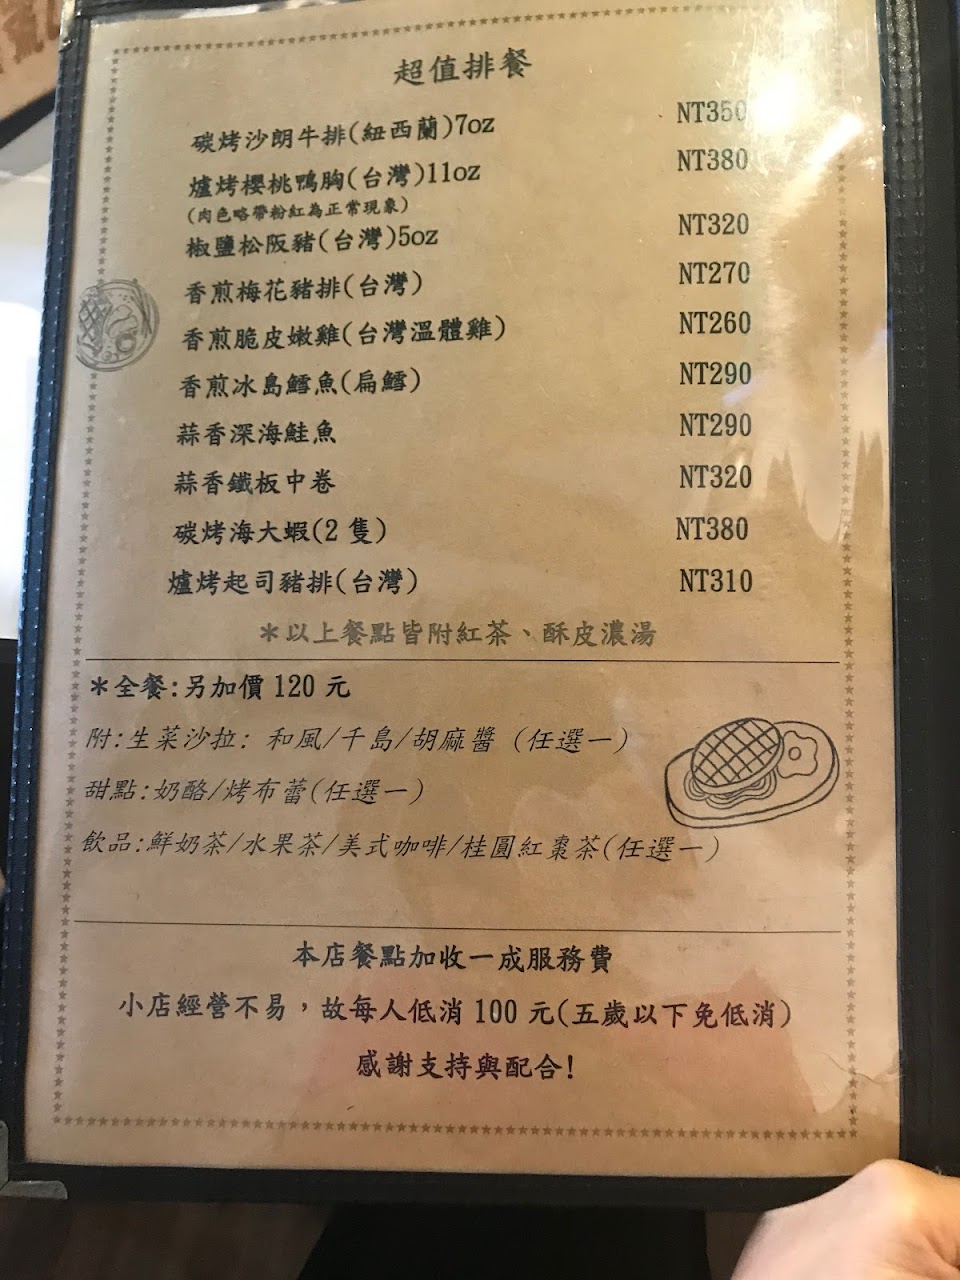 超值排餐
碳烤沙朗牛排(紐西蘭)7oz NT350
爐烤櫻桃鴨胸(台灣)11oz NT380
(肉色略帶粉紅為正常現象)
椒鹽松阪豬(台灣)5oz NT320
香煎梅花豬排(台灣) NT270
香煎脆皮嫩雞(台灣溫體雞) NT260
香煎冰島鱈魚(扁鱈) NT290
蒜香深海鮭魚 NT290
蒜香鐵板中卷 NT320
碳烤海大蝦(2 隻) NT380
爐烤起司豬排(台灣) NT310
＊以上餐點皆附紅茶、酥皮濃湯
＊全餐:另加價 120 元
附:生菜沙拉: 和風/千島/胡麻醬 (任選一)
甜點:奶酪/烤布蕾(任選一)
飲品:鮮奶茶/水果茶/美式咖啡/桂圓紅棗茶(任選一)
本店餐點加收一成服務費
小店經營不易，故每人低消 100 元(五歲以下免低消)
感謝支持與配合!